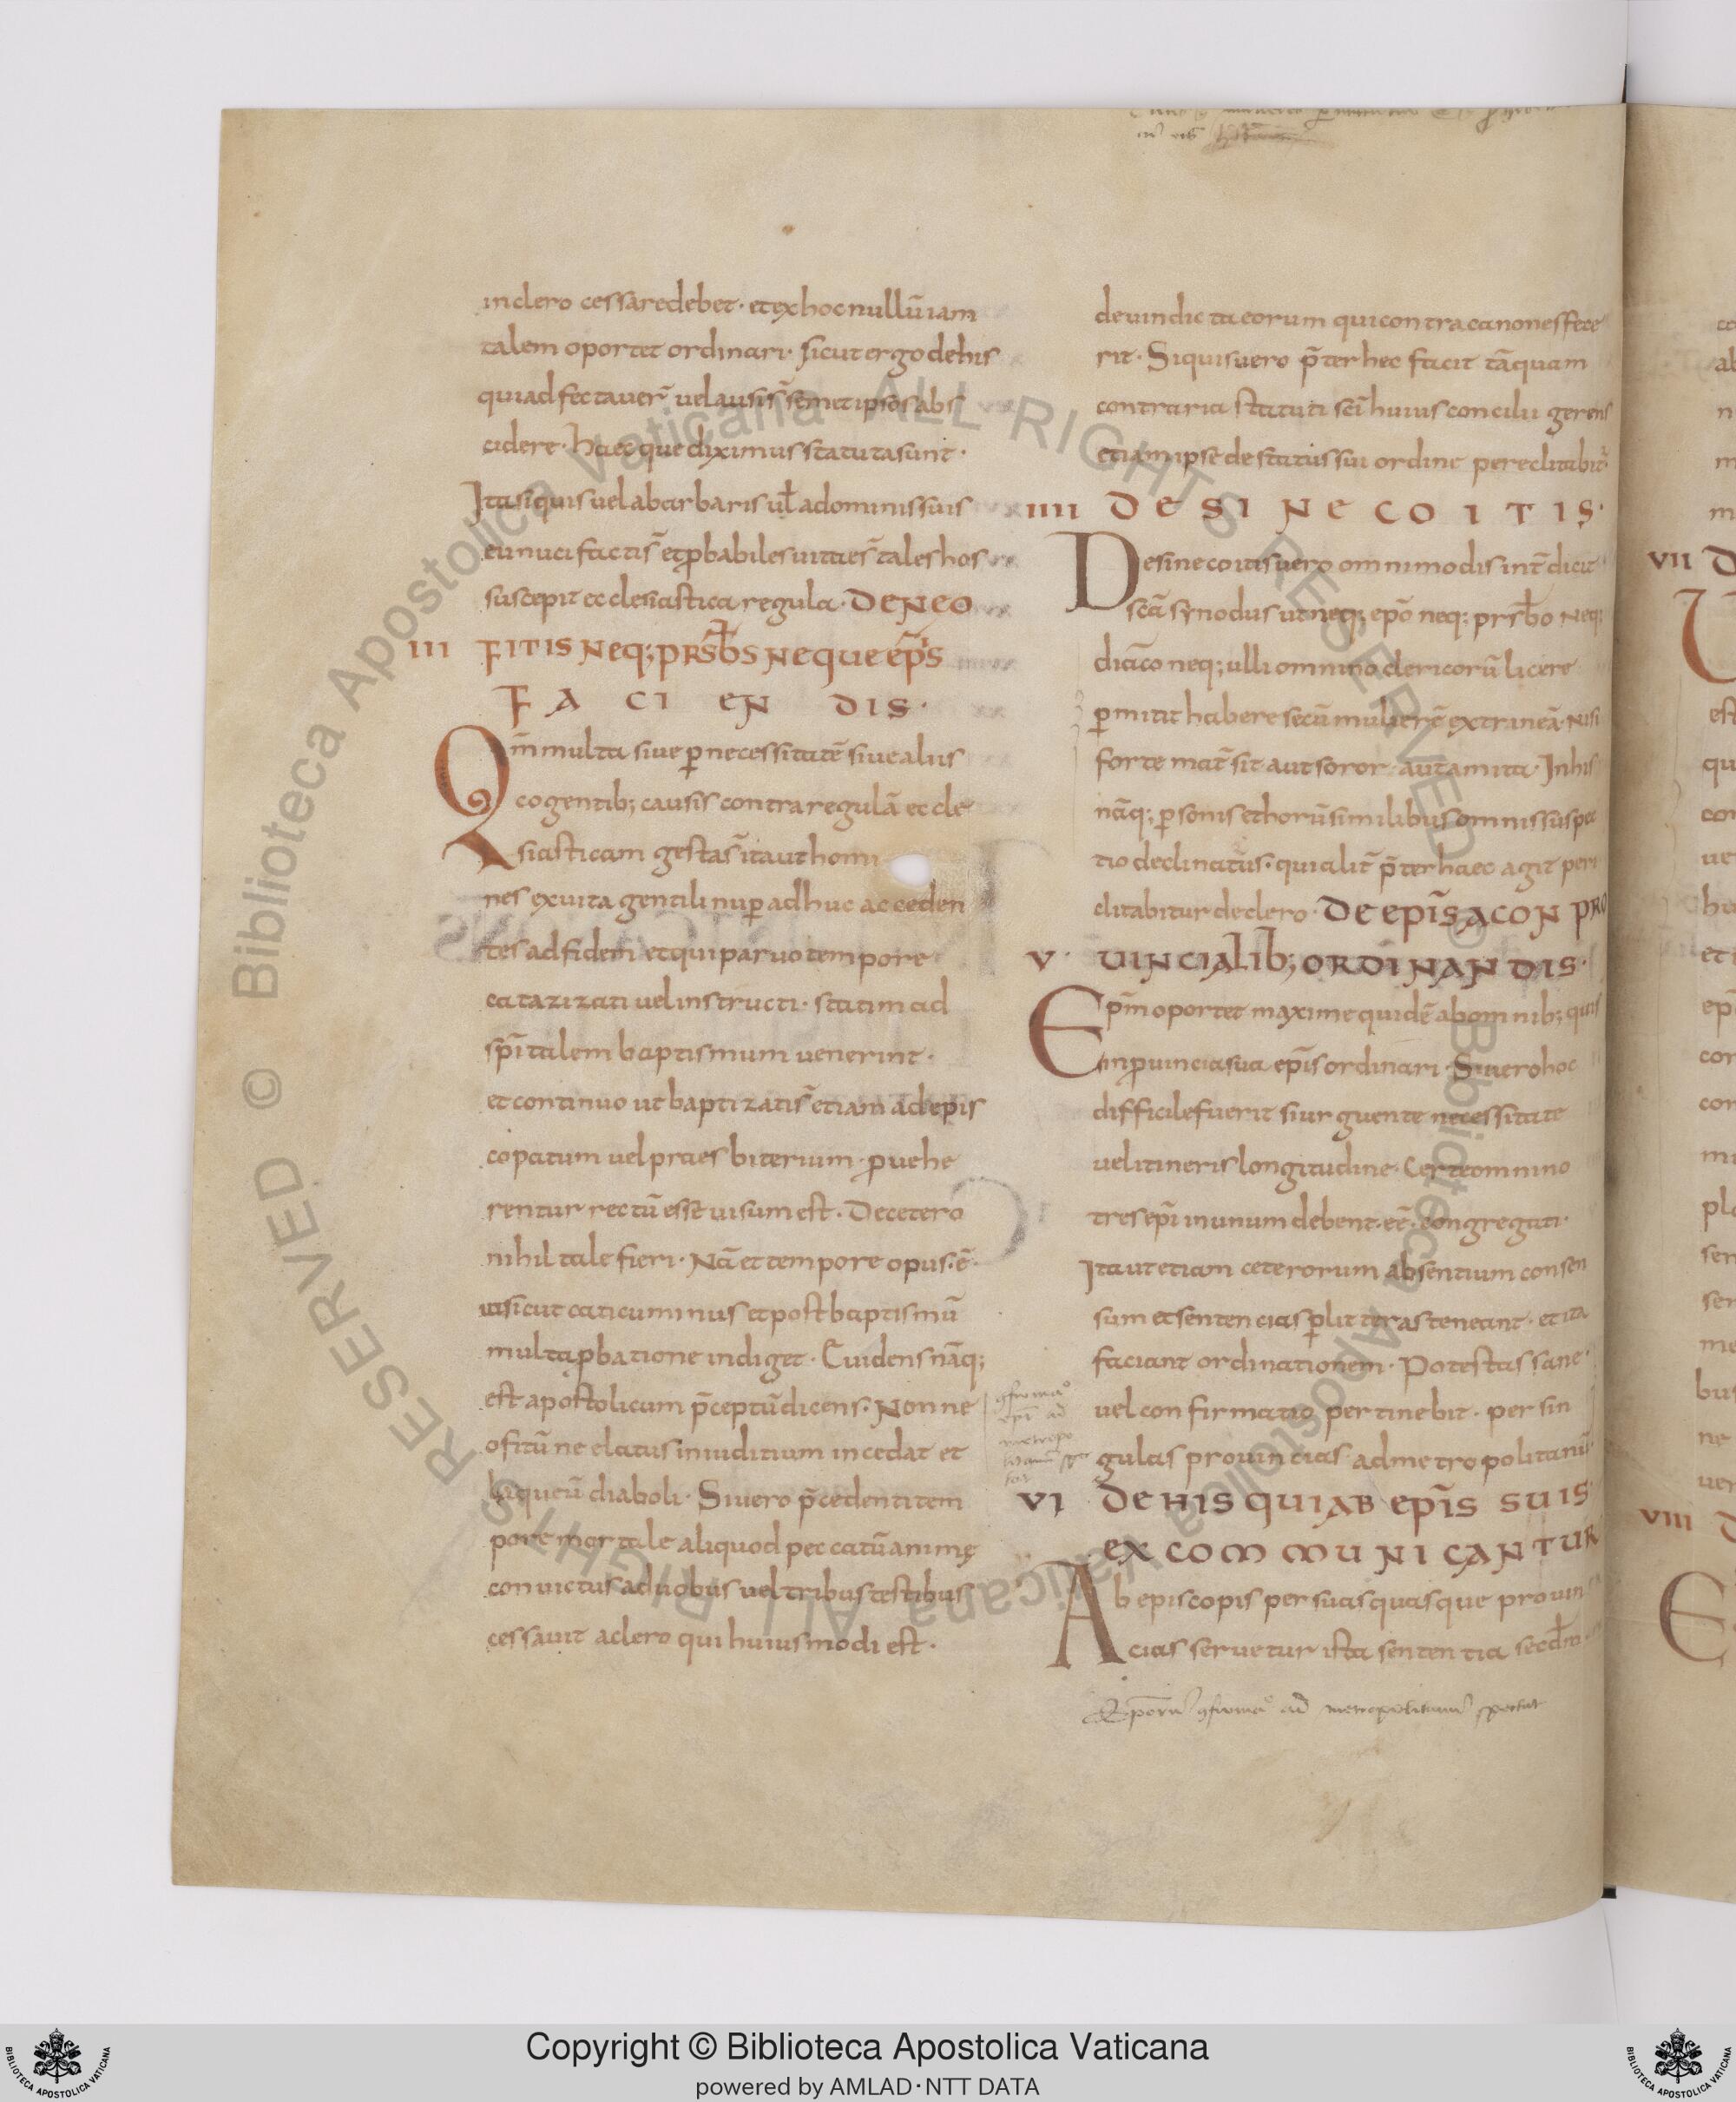 in clero cessare debet · et ex hoc nullū iam
talem oportet ordinari · sicut ergo de his
qui adfectauer̄ uel ausi s̄ semet ipsos abs
cidere · haec que diximus statuta sunt ·
Ita si quis uel a barbaris ul̄ a dominis suis
eunuci facti s̄ et pbabiles uitae s̄ tales hos
suscepit ecclesiastica regula · DE NEO
III FITIS NEQ; PRSB̄S NEQUE EP̄S
FACIENDIS ·
Qm̄ multa siue p̱ necessitatē siue aliis
cogentib; causis contra regulā eccle
siasticam gesta s̄ ita ut homi
nes ex uita gentili nup̱ adhuc acceden
tes ad fidem et qui paruo tempore
catazizati uel instructi · statim ad
sp̄italem baptismum uenerint ·
et continuo ut baptizati s̄ etiam ad epis
copatum uel praesbiterium · puehe
rentur rectū esse uisum est · De cetero
nihil tale fieri · Nā et tempore opus · ē ·
ut sicut caticuminus et post baptismū
multa pbatione indiget · Euidens nāq;
est apostolicum p̄ceptū dicens · Non ne
ofitū ne elatus in iuditium incedat et
laqueū diaboli · Si uero p̄cedenti tem
pore mortale aliquod peccatū animę
conuictus a duobus uel tribus testibus
cessauit a clero qui huiusmodi est ·
de uindicta eorum qui contra canones fece
rit · Si quis uero p̄ter hec facit tāquam
contraria statuti scī huius concilii gerens
etiam ipse de status sui ordine pereclitabit̄
IIII DESINECOITIS ·
Desinecoitis uero omnimodis int̄dicit
scā synodus ut neq; ep̄o neq; prsb̄o neq;
diacō neq; ulli omnino clericorū licere
p̱mitit habere secū mulierē extrineā · Nisi
forte mat̄ sit aut soror · aut amita · In his
nāq; p̱sonis et horū similibus omnis suspec
tio declinatus · qui alit̄ p̄ter haec agit peri
clitabitur de clero · DE EPĪS A CONPRO
V · UINCIALIB; ORDINANDIS ·
Ep̄m oportet maxime quidē ab omnib; qui s̄
in puincia sua epīs ordinari · Si uero hoc
difficile fuerit si urguente necessitate
uel itineris longitudine · Certe omnino
tres ep̄i in unum debent · eē · congregati ·
Ita ut etiam ceterorum absentium consen
sum et sentencias p̱ litteras teneant · et ita
faciant ordinationem · Potestas sane ·
uel confirmatio pertinebit · per sin
gulas prouincias · ad metropolitanū ·
VI DE HIS QUI AB EPĪS SUIS ·
EXCOMMUNICANTUR
Ab episcopis per suas quasque prouin
cias seruetur ista sententia secd̄m
Eporū ꝯfirmaº ad metropolitanū spectat
VII
VIII